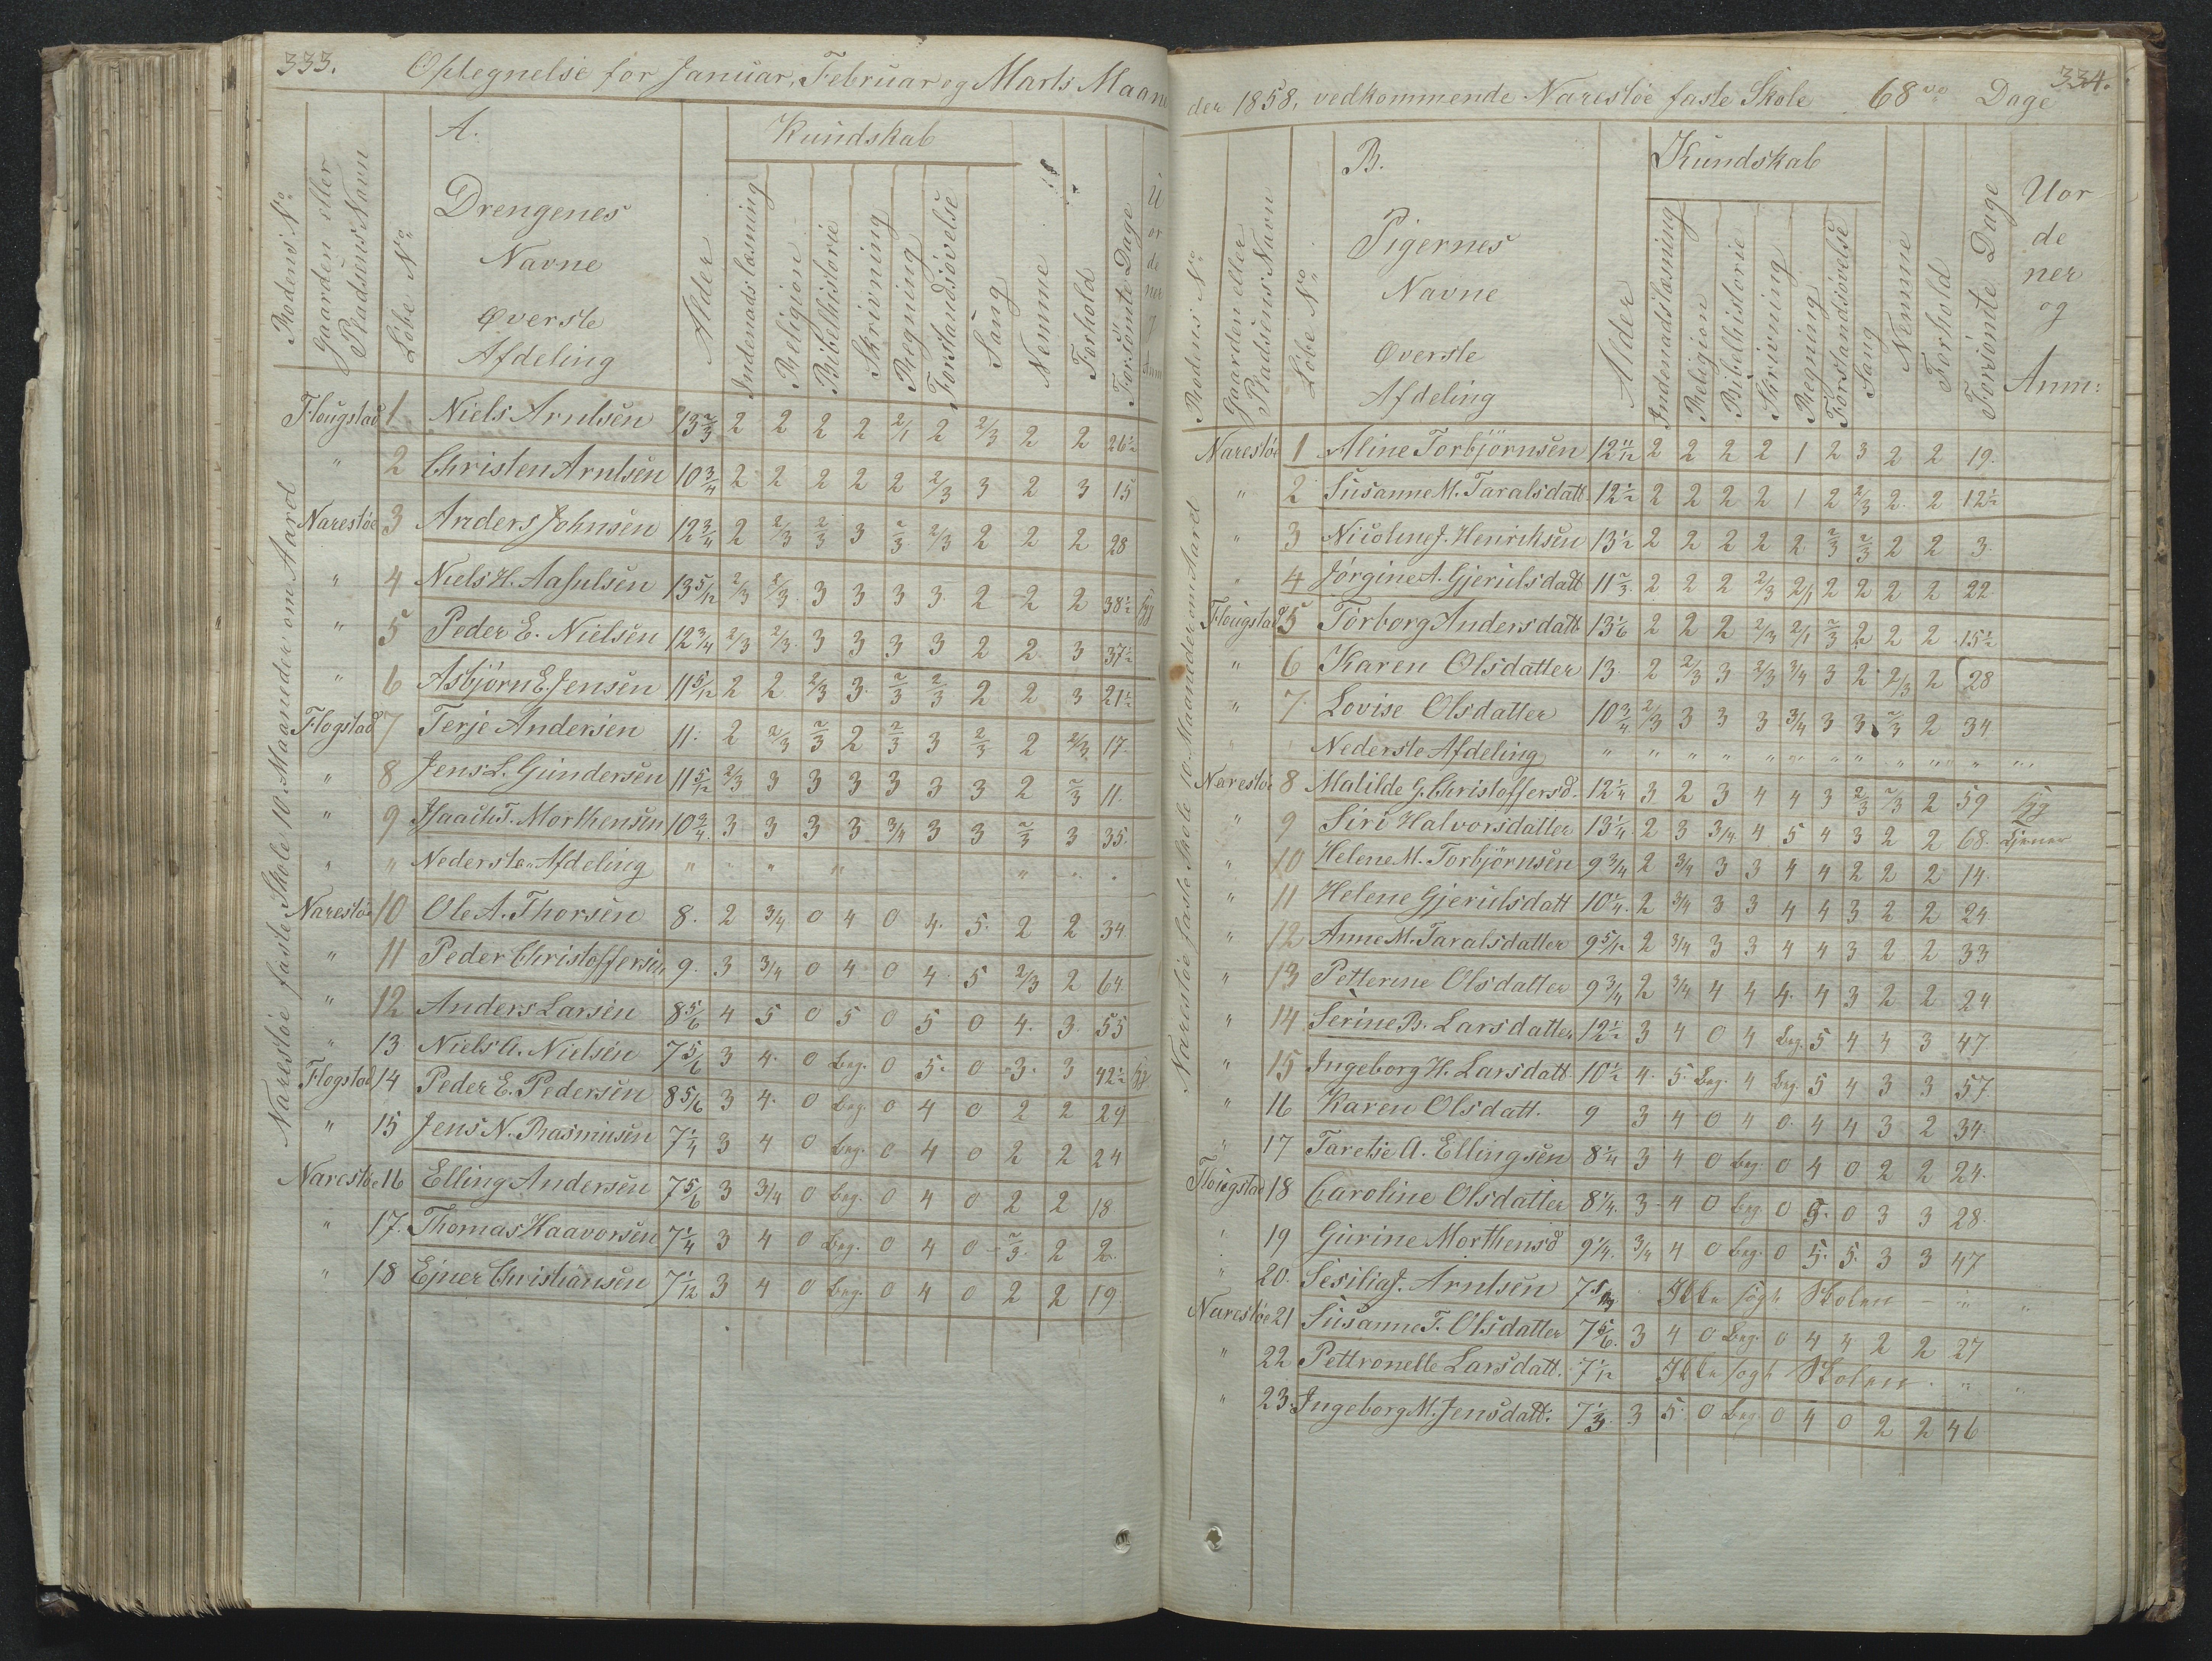 333.
Optegnelse for Januar, Februar og Marts Maane
A.
Kundskab
Rodens No
Gaarden eller
Pladsens Navn
Löbe No
Drengenes
Navne
Øverste
Afdeling
Alder
Indenads læsning
Religion
Bibelhistorie
Skrivning
Regning
Forstandsövelse
Sang
Nemme
Forhold
Forsömte Dage
U
or
de
ner
Narestöe faste Skole 10 Maaneder om Aaret
Flougstad 1 Niels Arntsen 13 2/3 2 2 2 2 2/1 2 2/3 2 2 26 1/2
" 2 Christen Arntsen 10 3/4 2 2 2 2 2 2/3 3 2 3 15
Narestöe 3 Anders Johnsen 12 3/4 2 2/3 2/3 3 2/3 2/3 2 2 2 28
" 4 Niels H. Aasulsen 13 5/12 2/3 2/3 3 3 3 3 2 2 2 38 1/2 syg
" 5 Peder E. Nielsen 12 3/4 2/3 2/3 3 3 3 3 2 2 3 37 1/2
" 6 Asbjörn E. Jensen 11 5/12 2 2 2/3 3 2/3 2/3 2 2 3 21 1/2
Flogstad 7 Terje Andersen 11 2 2/3 2/3 2 2/3 3 2/3 2 2/3 17
" 8 Jens L. Gundersen 11 5/12 2/3 3 3 3 3 3 3 2 2/3 11
" 9 Isaach T. Morthensen 10 3/4 3 3 3 3 3/4 3 3 2/3 3 35
" " Nederste Afdeling " " " " " " "
Narestöe 10 Ole A. Thorsen 8. 2 3/4 0 4 0 4 5 2 2 34
" 11 Peder Christoffersen 9. 3 3/4 0 4 0 4 5 2/3 2 64
" 12 Anders Larsen 8 5/6 4 5 0 5 0 5 0 4 3 55
" 13 Niels A. Nielsen 7 5/6 3 4 0 Beg. 0 5 0 3 3 42 1/2 syg
Flogstad 14 Peder E. Pedersen 8 5/6 3 4 0 Beg. 0 4 0 2 2 29
" 15 Jens N. Rasmusen 7 1/4 3 4 0 Beg. 0 4 0 2 2 24
Narestöe 16 Elling Andersen 7 5/6 3 3/4 0 Beg. 0 4 0 2 2 18
" 17. Thomas Haavorsen 7 1/4 3 4 0 Beg. 0 4 0 2/3 2 2
" 18 Ejner Christiansen 7 1/12 3 4 0 Beg. 0 4 0 2 2 19
334.
der 1858, vedkommende Narestöe faste Skole 68 Dage
B.
Kundskab
Rodens No
Gaarden eller
Pladsens Navn
Löbe No
Pigernes
Navne
Øverste
Afdeling
Alder
Indenadslæsning
Religion
Bibelhistorie
Skrivning
Regning
Forstandsövelse
Sang
Nemme
Forhold
Forsömte Dage
Uor
de
ner
og
Anm:
Narestöe faste Skole 10 Maaneder om Aaret
Narestöe 1 Aline Torbjörnsen 12 11/12 2 2 2 2 1 2 3 2 2 19.
" 2 Susanne M. Taralsdatt 12 1/2 2 2 2 2 1 2 2/3 2 2 12 1/2
" 3 Nicoline J. Henriksen 13 1/2 2 2 2 2 2 2/3 2/3 2 2 3.
" 4 Jörgine A. Gjerulsdatt 11 2/3 2 2 2 2/3 2/1 2 2 2 2 22
Flougstad 5 Torborg Andersdatt 13 1/6 2 2 2 2/3 2/1 2/3 2 2 2 15 1/2
" 6 Karen Olsdatter 13 2 2/3 3 2/3 3/4 3 2 2/3 2 28
" 7 Lovise Olsdatter 10 3/4 2/3 3 3 3 3/4 3 3 2/3 2 34
Nederste Afdeling " " " " " " " " " " "
Narestöe 8 Matilde G. Christoffersd. 12 1/4 3 2 3 4 4 3 2/3 2/3 2 59 syg
" 9 Siri Halvorsdatter 13 1/4 2 3 3/4 4 5 4 3 2 2 68 tjener
" 10 Helene M. Torbjörnsen 9 3/4 2 3/4 3 3 4 4 2 2 2 14
" 11 Helene Gjerulsdatt 10 1/4 2 3/4 3 3 4 4 3 2 2 24
" 12 Anne M. Taralsdatter 9 5/12 2 3/4 3 3 4 4 3 2 2 33
" 13 Petterine Olsdatter 9 3/4 2 3/4 4 4 4 4 3 2 2 24
" 14 Serine B. Larsdatter 12 1/2 3 4 0 4 Beg. 5 4 4 3 47
" 15 Ingeborg H. Larsdatt 10 1/2 4 5 Beg. 4 Beg. 5 4 3 3 57
" 16 Karen Olsdatt. 9 3 4 0 4 0 4 4 3 2 34
" 17 Taretje A. Ellingsen 8 1/4 3 4 0 Beg. 0 4 0 2 2 24
Flougstad 18 Caroline Olsdatter 8 1/4 3 4 0 Beg. 0 5 0 3 3 28
" 19 Gurine Morthensd 9 1/4 3/4 4 0 Beg. 0 5 5 3 3 47
" 20. Sesilia J. Arntsen 7 Ikke sögt Skolen " "
Narestöe 21 Susanne T. Olsdatter 7 5/6 3 4 0 Beg. 0 4 4 2 2 27
" 22 Pettronelle Larsdatt. 7 1/12 Ikke sögt Skolen " "
" 23. Ingeborg M. Jensdatt. 7 1/3 3 5 0 Beg. 0 4 0 2 2 46